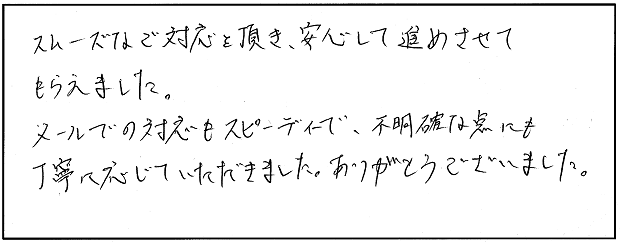 スムーズなご対応を頂き、安心して進めさせて
もらえました。
メールでの対応もスピーディーで、不明確な点にも
丁寧に応じていただきました。ありがとうございました。